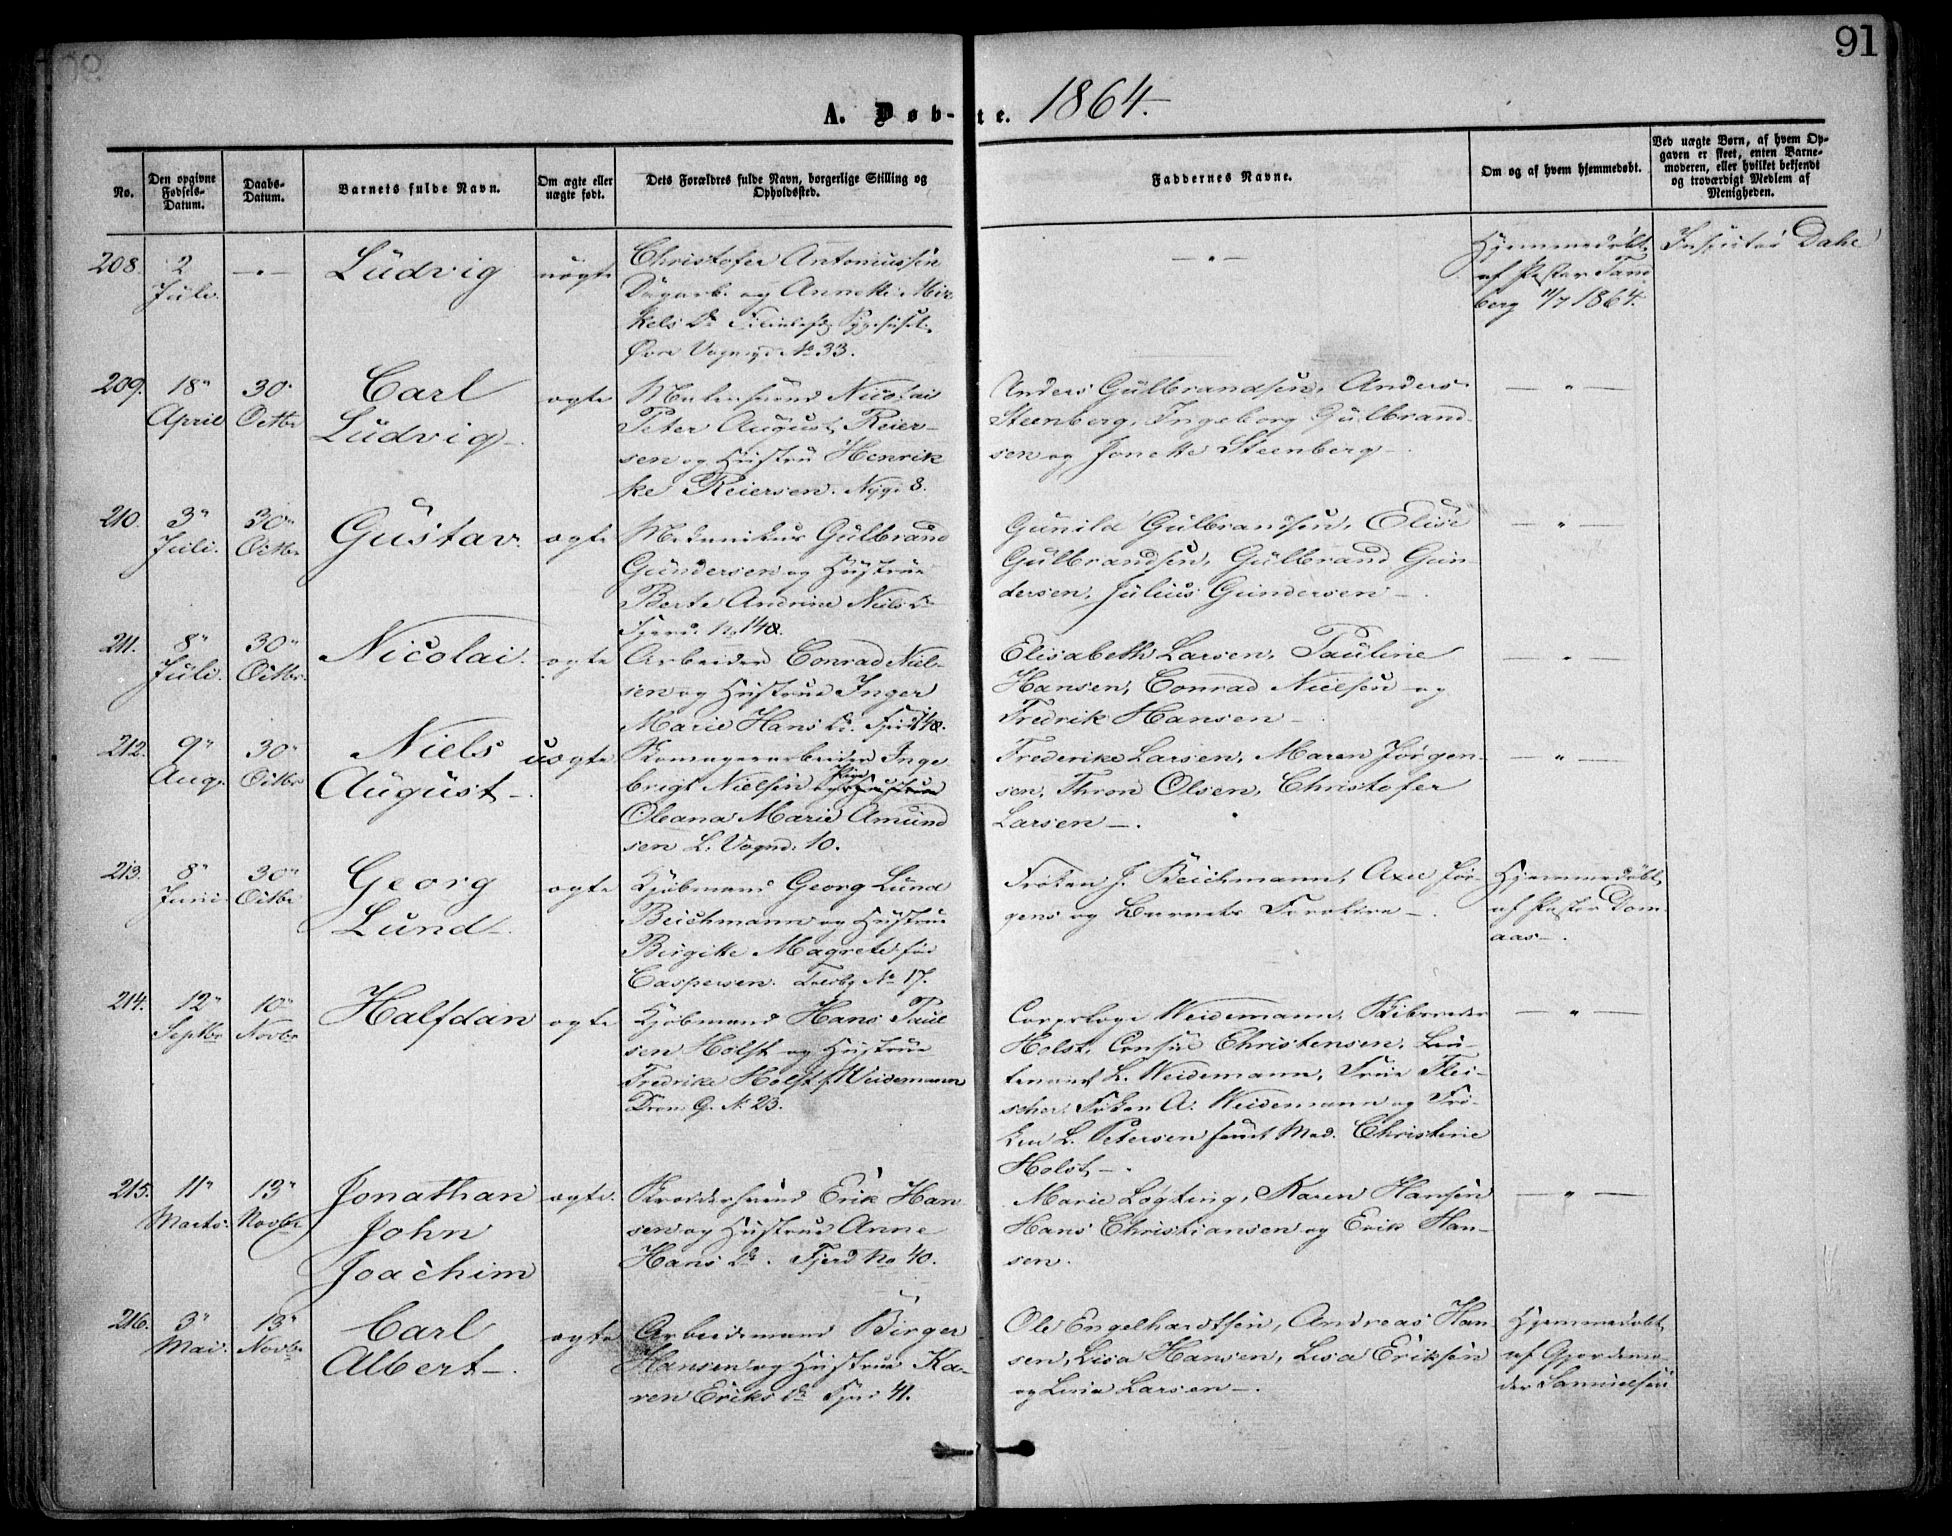 91
A. Døb-te. 1864.
No.
Den opgivne Fødsels-Datum.
Daabs-Datum.
Barnets fulde Navn.
Om ægte eller uægte født.
Dets Forældres fulde Navn, borgerlige Stilling og Opholdssted.
Faddernes Navne.
Om og af hvem hjemmedøbt.
Ved uægte Børn, af hvem Opgaven er skeet, enten Barnemoderen, eller hvilket bekjendt og troværdigt Medlem af Menigheden.
208. 2 Juli. —"— Ludvig uægte
Christofer Antoniussen
Dagarb. og Annette Mik-
kels Dr
Øvre Vogng. No 33.
—"—
Hjemmedøbt
af Pastor Tand
berg 11/7 1864.
Dahl
209. 18" April 30" Octbr Carl
Ludvig ægte
Malersvend Nicolai
Peter August Reier-
sen og Hustru Henrik
ke Reiersen. Nyg. 8.
Anders Gulbrandsen, Anders
Steenberg, Ingeborg Gulbrand-
sen og Jonette Steenberg.
—"—
210. 3" Juli. 30" Octbr Gustav. ægte
Mekanikus Gulbrand
Gundersen og Hustrue
Berte Andrine Niels Dr
No 148.
Gunild Gulbrandsen, Elise
Gulbrandsen, Gulbrand Gun-
dersen, Julius Gundersen.
—"—
211. 8" Juli. 30" Octbr. Nicolai. ægte
Arbeider Conrad Niel-
sen og Hustrue Inger
Marie Hans Dr. 148.
Elisabeth Larsen, Pauline
Hansen, Conrad Nielsen og
Fredrik Hansen
—"—
212. 9" Aug. 30" Octbr Niels
August uægte
Inge
brigt Nielsen og Pige Hustrue
Oleana Marie Amund
sen L. Vogng. 10.
Frederike Larsen, Maren Jørgen-
sen, Thron Olsen, Christofer
Larsen
—"—
213. 8" Juni. 30" Octbr Georg
Lund ægte
Kjøbmand Georg Lund
Beichmann og Hustrue
Birgitte Magrete før
Caspersen. No 17.
Frøken J. Beichmann, Axel Jør-
gens og Barnets Forældre
Hjemmedøbt
af Pastor Dom-
aas.
214. 12" Septbr 10" Novbr Halfdan ægte
Kjøbmand Hans Paul
sen Holst og Hustrue
Fredrike Holst f. Weidemann
Dron. G. No 23.
Corpslæge Weidemann, Skibsreder
Holst, Consul Christensen, Lieu-
tenant L. Weidemann, Frue Flei-
scher, Frøken A. Weidemann og Frø-
ken L. Petersen samt Mad. Christine
Holst
—"—
215. 11" Marts. 13" Novbr Jonathan
John
Joachim ægte.
Skræddersvend Erik Han
sen og Hustrue Anne
Hans Dr. Fjerd No 40.
Marie Løgting, Karen Hansen
Hans Christiansen og Erik Han-
sen.
—"—
216. 3" Mai. 13" Novbr Carl
Albert ægte
Arbeidsmand Birger
Hansen og Hustrue Ka-
ren Eriks Dr 41.
Ole Engelhardtsen, Andreas Han
sen, Lisa Hansen, Lisa Eriksen
og Larsen
Hjemmedøbt
af Gjordemo-
der Samuelsen